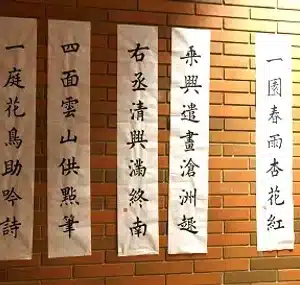 一園春雨杏花紅
乘興遣畫滄洲趣
右丞清興滿終南
四面雲山供點筆
一庭花鳥助吟詩